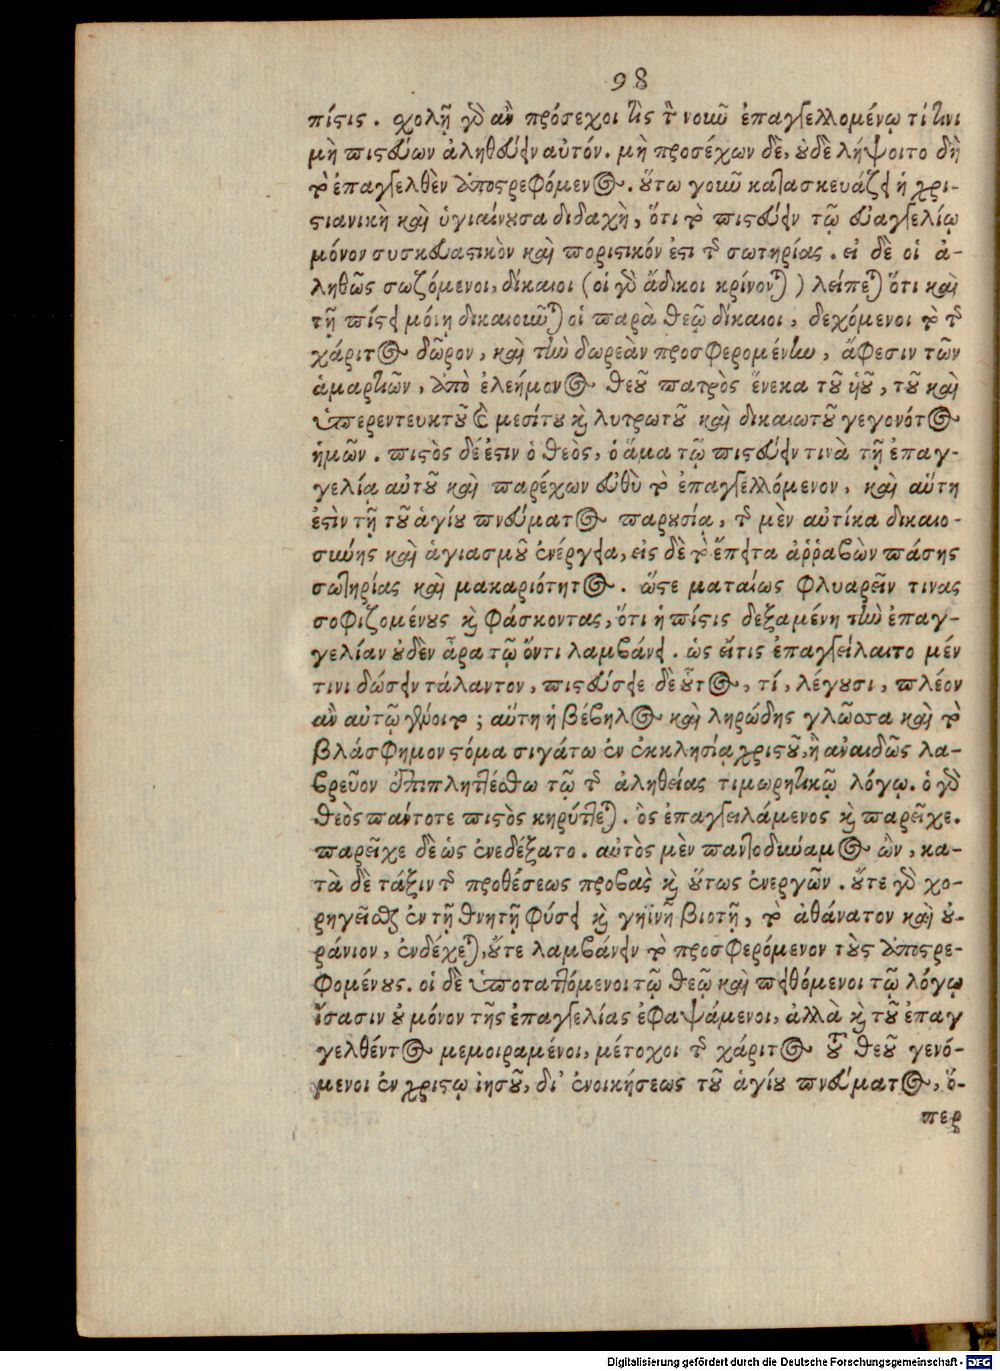 98
πίστις. σχολῇ γὸ ἂν πρόσεχοι τὶς τὸν νοιοῦ ἐπαγγελλομένῳ τί τινι
μὴ πιστεύων ἀληθεύειν αὐτόν. μὴ προσέχων δὲ, οὐδὲ λήψοιτο δὴ
τὸ ἐπαγγελθὲν ἀποστρεφόμενος. οὕτω γοιοῦ κατασκευάζει ἡ χρι-
στιανικὴ καὶ ὑγιαίνουσα διδαχὴ, ὅτι τὸ πιστεύειν τῷ εὐαγγελίῳ
μόνον συσκευαστικὸν καὶ ποριστικόν ἐστι τῆς σωτηρίας. εἰ δὲ οἱ ἀ-
ληθῶς σωζόμενοι, δίκαιοι (οἱ γὰρ ἄδικοι κρίνονται) λείπεται ὅτι καὶ
τῇ πίστει μόνῃ δικαιοῦνται οἱ παρὰ θεῷ δίκαιοι, δεχόμενοι τὸ τῆς
χάριτος δῶρον, καὶ τὴν δωρεὰν προσφερομένην, ἄφεσιν τῶν
ἁμαρτιῶν, ἀπὸ ἐλεήμονος θεοῦ πατρὸς ἕνεκα τοῦ ἱοῦ, τοῦ καὶ
ὑπερεντευκτοῦ καὶ μεσίτου καὶ λυτρωτοῦ καὶ δικαιωτοῦ γεγονότος
ἡμῶν. πιστὸς δέ ἐστιν ὁ θεὸς, ὁ ἅμα τῷ πιστεύειν τινὰ τῇ ἐπαγ-
γελίᾳ αὐτοῦ καὶ παρέχων εὐθὺ τὸ ἐπαγγελλόμενον, καὶ αὕτη
ἐστὶν τῇ τοῦ ἁγίου πνεύματος παρουσία, τῆς μὲν αὐτίκα δικαιο-
σύνης καὶ ἁγιασμοῦ ἐνέργεια, εἰς δὲ τὸ ἔπειτα ἀῤῥαβὼν πάσης
σωτηρίας καὶ μακαριότητος. ὥστε ματαίως φλυαρεῖν τινας
σοφιζομένους καὶ φάσκοντας, ὅτι ἡ πίστις δεξαμένη τὴν ἐπαγ-
γελίαν οὐδὲν ἆρα τῷ ὄντι λαμβάνει. ὡς εἴτις ἐπαγγείλαιτο μέν
τινι δώσειν τάλαντον, πιστεύσειε δὲ οὗτος, τί, λέγουσι, πλέον
ἂν αὐτῷ γένοιτο; αὕτη ἡ βέβηλος καὶ ληρώδης γλῶσσα καὶ τὸ
βλάσφημον στόμα σιγάτω ἐν ἐκκλησίᾳ χριστοῦ, ἢ ἀναιδῶς λα-
βρεῦον ἐπιπληττέσθω τῷ τῆς ἀληθείας τιμωρητικῷ λόγῳ. ὁ γὰρ
θεὸς πάντοτε πιστὸς κηρύττεται. ὃς ἐπαγγειλάμενος καὶ παρεῖχε.
παρεῖχε δὲ ὡς ἐνεδέξατο. αὐτὸς μὲν παντοδύναμος ὢν, κα-
τὰ δὲ τάξιν τῆς προθέσεως προβὰς καὶ οὕτως ἐνεργῶν. οὔτε γὰρ χο-
ρηγεῖσθαι ἐν τῇ θνητῇ φύσει καὶ γηΐνῃ βιοτῇ, τὸ ἀθάνατον καὶ οὐ-
ράνιον, ἐνδέχεται, οὔτε λαμβάνειν τὸ προσφερόμενον τοὺς ἀποστρε-
φομένους. οἱ δὲ ὑποταττόμενοι τῷ θεῷ καὶ πειθόμενοι τῷ λόγῳ
ἴσασιν οὐ μόνον τῆς ἐπαγγελίας ἐφαψάμενοι, ἀλλὰ καὶ τοῦ ἐπαγ
γελθέντος μεμοιραμένοι, μέτοχοι τῆς χάριτος τοῦ θεοῦ γενό-
μενοι ἐν χριστῷ ἰησοῦ, δι' ἐνοικήσεως τοῦ ἁγίου πνεύματος, ὅ-
περ
Digitalisierung gefördert durch die Deutsche Forschungsgemeinschaft - DFG